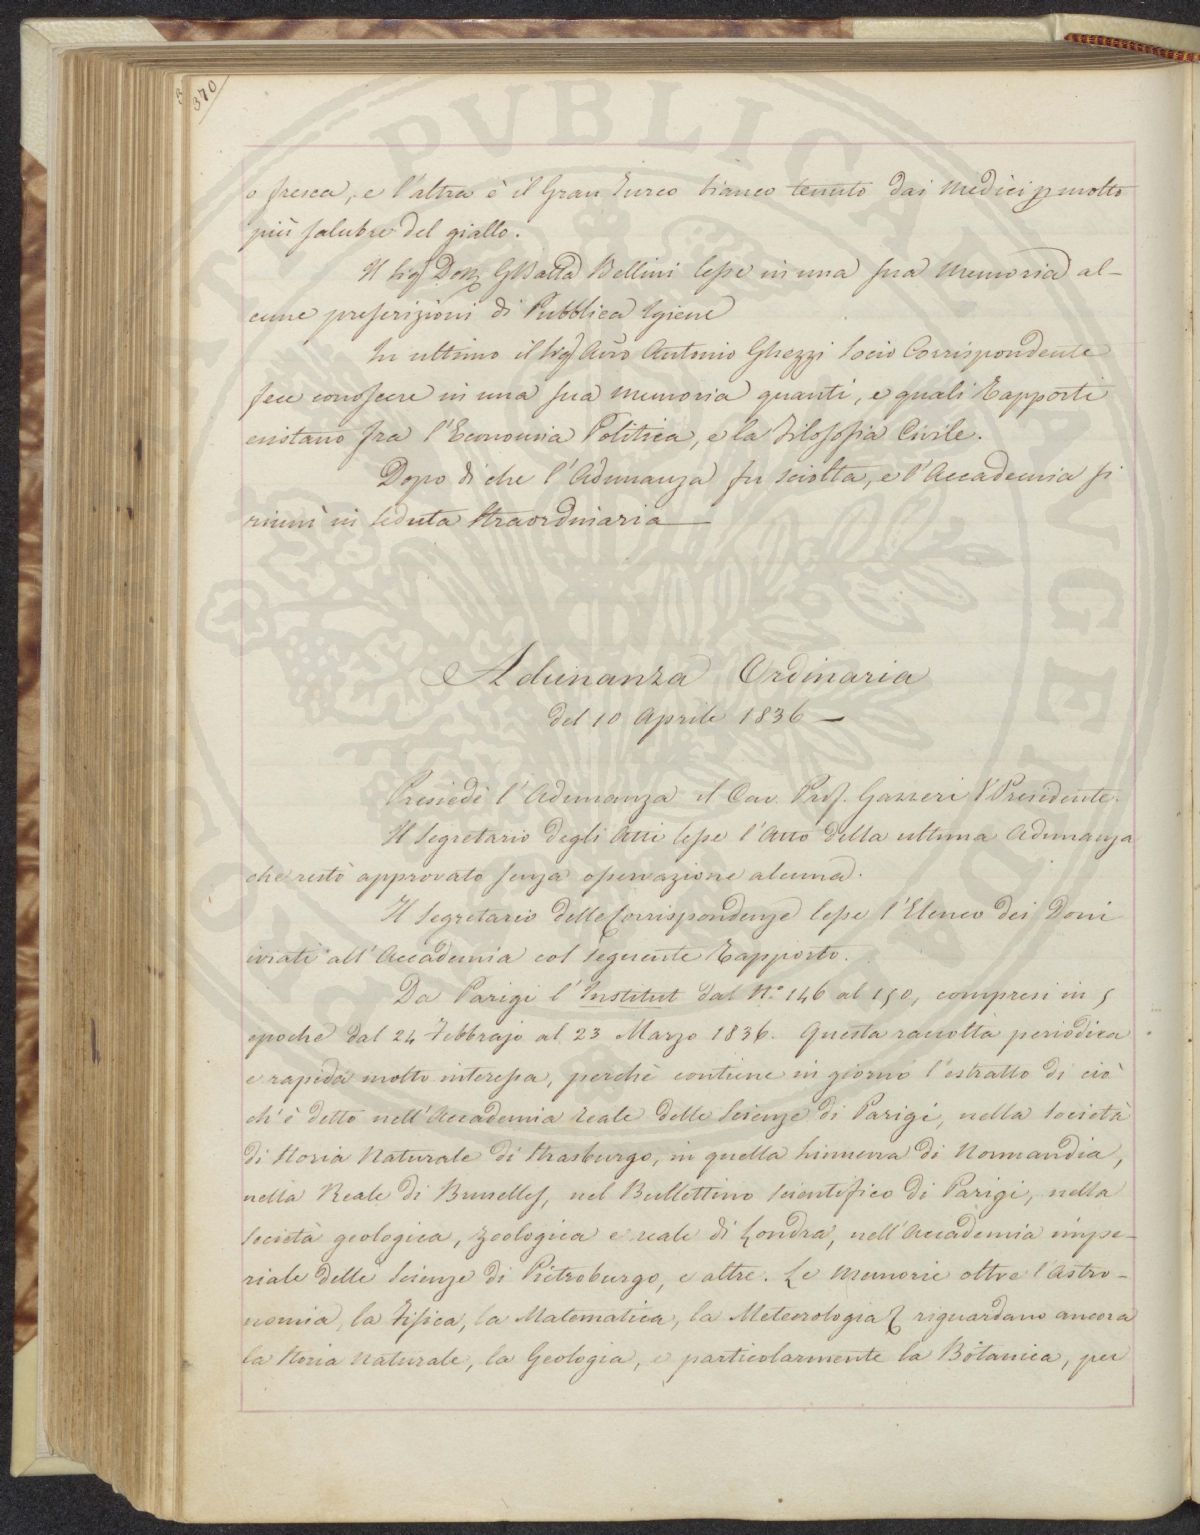 370
o fresca, e l'altra è il Gran Turco bianco tenuto dai Medici p molto
più salubre del giallo.
Il Sig.r Dott. GBatta Bellini lesse in una sua Memoria al-
cune prescrizioni di Pubblica Igiene
In ultimo il Sig.r Avv.o Antonio Ghezzi Socio Corrispondente
fece conoscere in una sua Memoria quanti, e quali Rapporti
esistano fra l'Economia Politica, e la Filosofia Civile.
Dopo di che l'Adunanza fu sciolta, e l'Accademia si
riunì in Seduta Straordinaria —
Adunanza Ordinaria
del 10 Aprile 1836 —
Presiedè l'Adunanza il Cav. Prof. Gazzeri V.Presidente.
Il Segretario degli Atti lesse l'Atto della ultima Adunanza
che restò approvato senza osservazione alcuna.
Il Segretario delle Corrispondenze lesse l'Elenco dei Doni
inviati all'Accademia col seguente Rapporto.
Da Parigi l'Institut dal N.° 146 al 150, compresi in 5
epoche dal 24 Febbrajo al 23 Marzo 1836. Questa raccolta periodica
e rapida molto interessa, perchè contiene in giorno l'estratto di ciò
ch'è detto nell'Accademia Reale delle Scienze di Parigi, nella Società
di Storia Naturale di Strasburgo, in quella Linneana di Normandia,
nella Reale di Bruselles, nel Bullettino Scientifico di Parigi, nella
Società geologica, zoologica e reale di Londra, nell'Accademia impe-
riale delle Scienze di Pietroburgo, e altre. Le Memorie oltre l'Astro-
nomia, la Fisica, la Matematica, la Meteorologia & riguardano ancora
la Storia Naturale, la Geologia, e particolarmente la Botanica, per